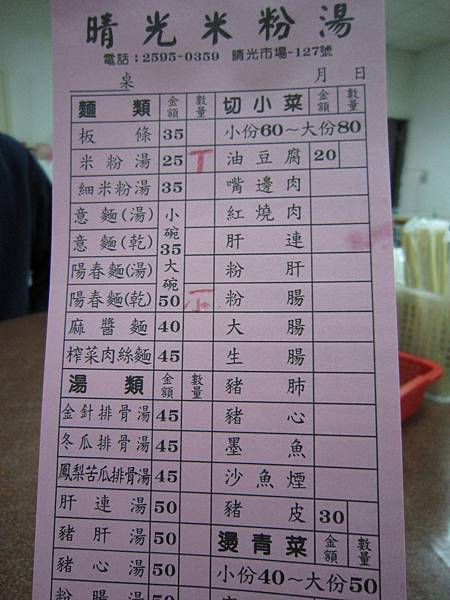 晴光米粉湯
電話：2595-0359 晴光市場-127號
桌 月 日
麵類 金額 數量
板條 35
米粉湯 25 丅
細米粉湯 35
意麵(湯) 小碗35 大碗50
意麵(乾)
陽春麵(湯)
陽春麵(乾)
麻醬麵 40
榨菜肉絲麵 45
湯類 金額 數量
金針排骨湯 45
冬瓜排骨湯 45
鳳梨苦瓜排骨湯 45
肝連湯 50
豬肝湯 50
豬心湯 50
粉腸湯 50
切小菜 金額 數量
小份60～大份80
油豆腐 20
嘴邊肉
紅燒肉
肝連
粉肝
粉腸
大腸
生腸
豬肺
豬心
墨魚
沙魚煙
豬皮 30
燙青菜 金額 數量
小份40～大份50